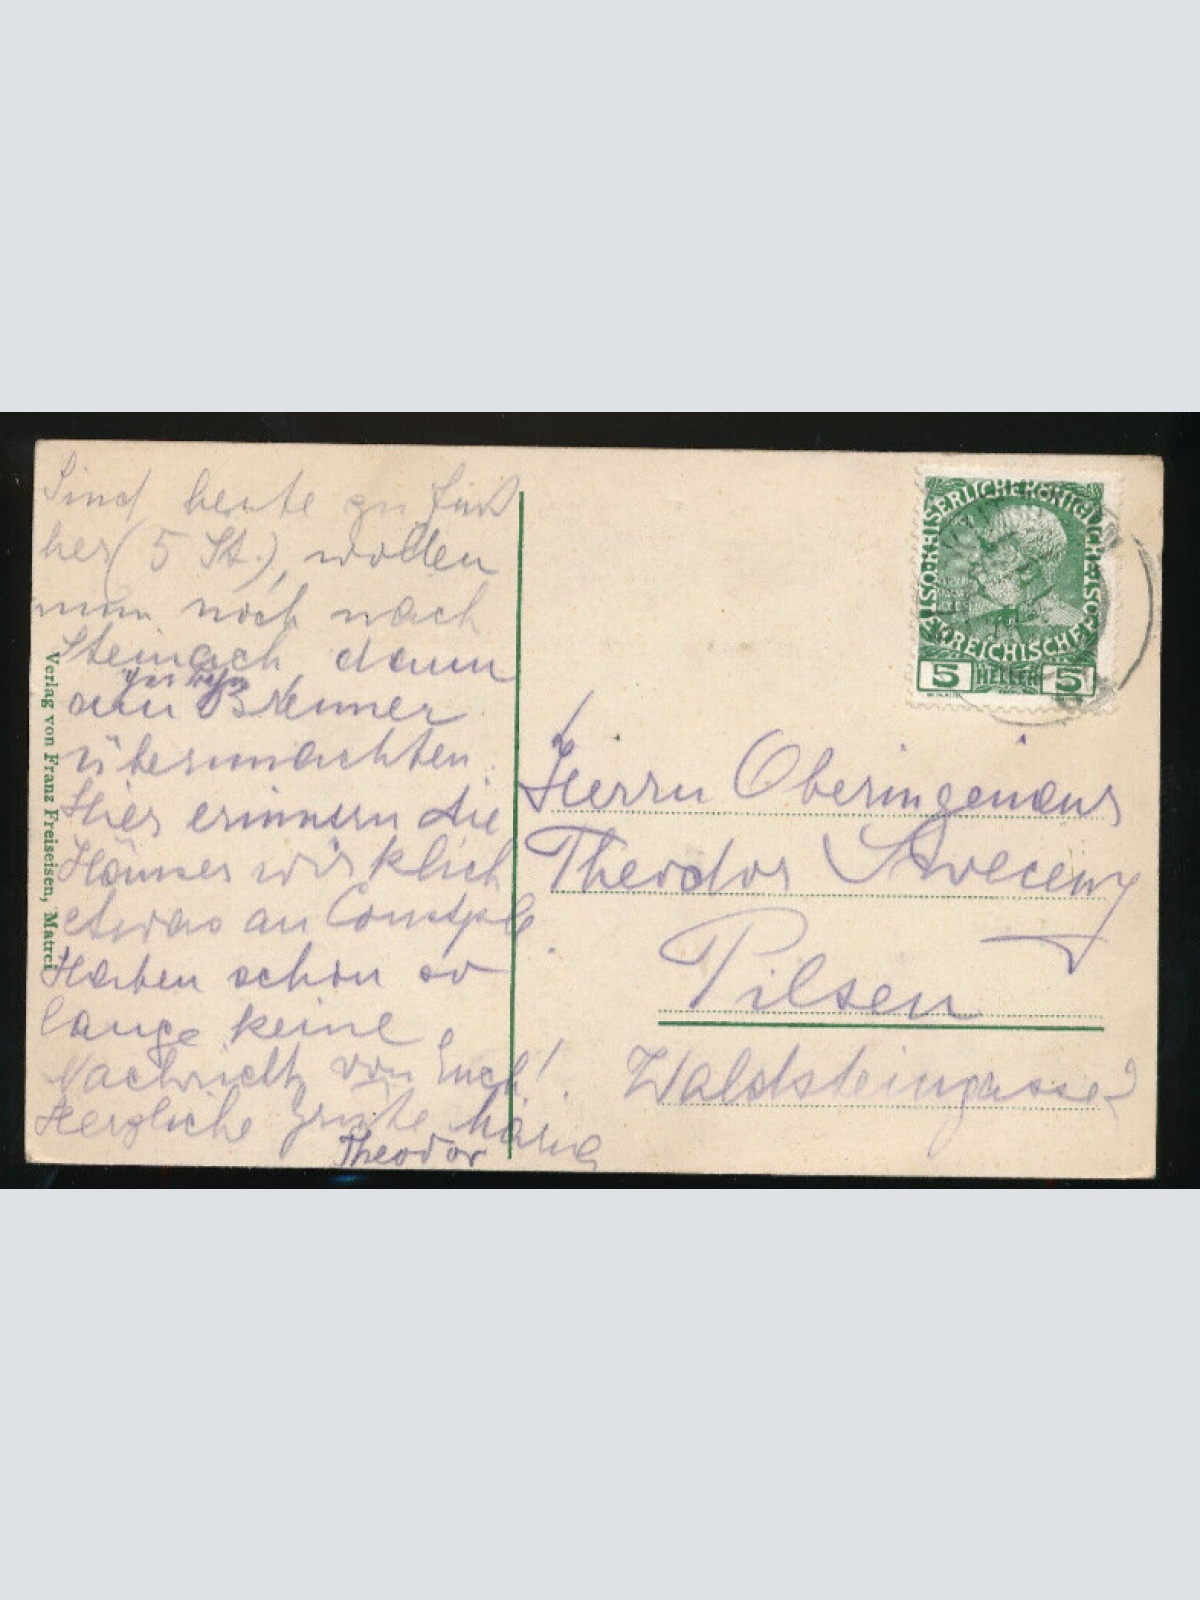 Sind heute zu Fuß
her (5 St.), wollen
nun noch nach
Steinach dann
per Bahn
am Brenner
übernachten.
Hier erinnern die
Häuser wirklich
etwas an Constple.
Haben schon so
lange keine
Nachricht von Euch!
Herzliche Grüße Marie
Theodor
Verlag von Franz Freiseisen, Matrei
KAISERLICHE KÖNIGLICHE ÖSTERREICHISCHE POST
5 HELLER 5
Herrn Oberingenieur
Theodor
Pilsen
Waldsteingasse